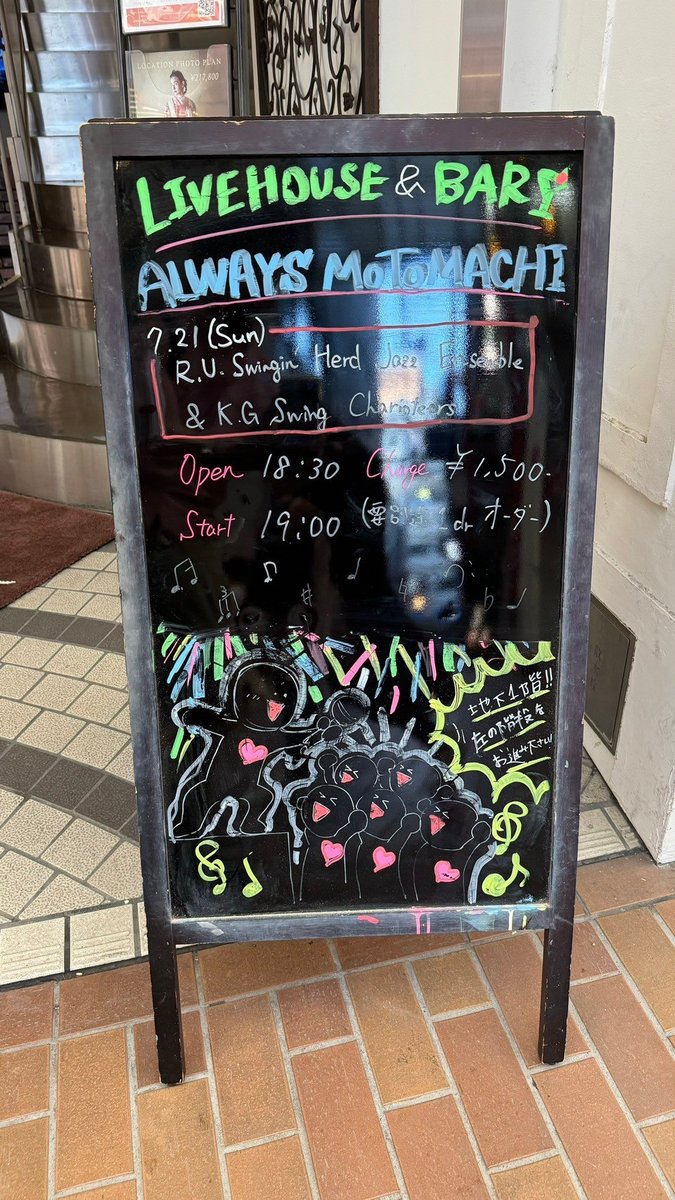 LOCATION PHOTO PLAN
¥217,800
LIVEHOUSE & BAR
ALWAYS MOTOMACHI
7.21 (Sun)
R.U. Swingin' Herd Jazz Ensemble
& K.G Swing Charioteers
Open 18:30 Charge ¥1,500-
Start 19:00 (要別途 1dr オーダー)
3
地下1階!!
左の階段を
お進み下さい!